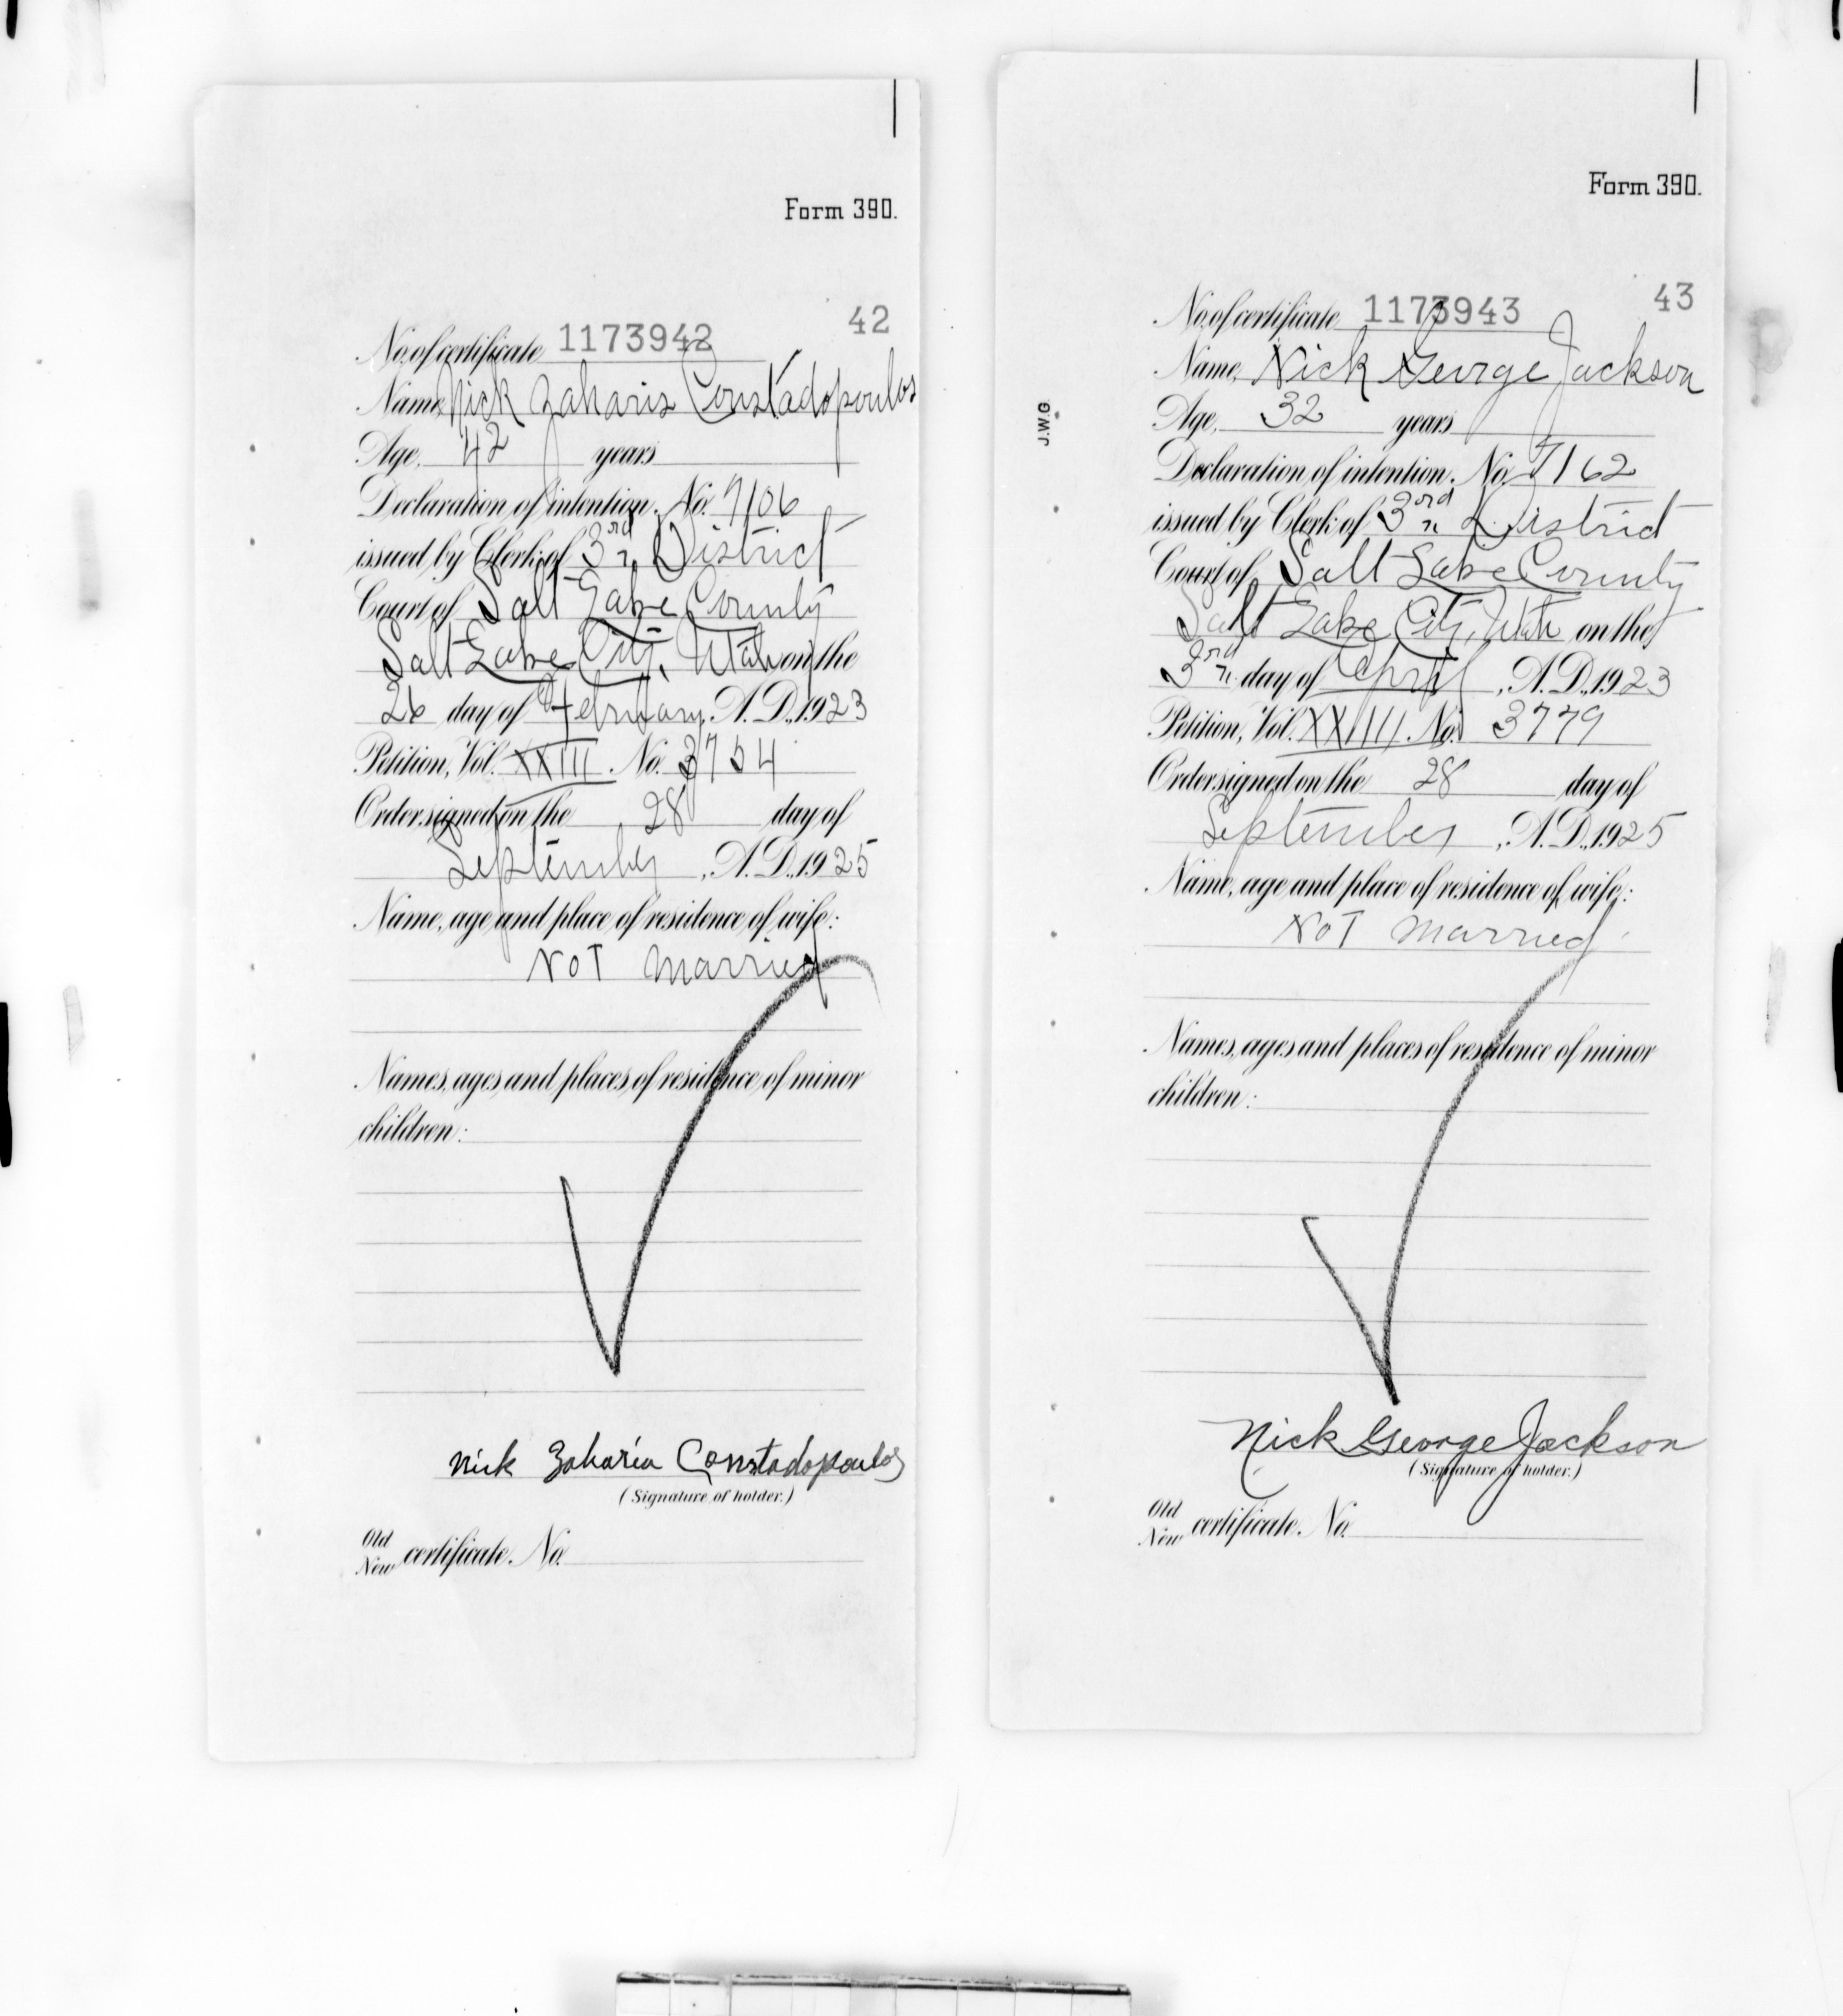 Form 390.
42
No. of certificate 1173942
Name Nick Zaharis Constadopoulos
Age, 42 years
Declaration of intention, No. 7106
issued by Clerk of 3rd District
Court of Salt Lake County
Salt Lake City, Utah on the
26 day of February, A.D., 1923
Petition, Vol. XXIII. No. 3754
Order signed on the 28 day of
September, A.D., 1925
Name, age and place of residence of wife:
NOT Married
Names, ages and places of residence of minor
children:
Nick Zaharia Constadopoulos
(Signature of holder.)
Old
New certificate No.
Form 390.
43
J.W.G.
No. of certificate 1173943
Name, Nick George Jackson
Age, 32 years
Declaration of intention, No. 7162
issued by Clerk of 3rd District
Court of Salt Lake County
Salt Lake City, Utah on the
3rd day of April, A.D., 1923
Petition, Vol. XXIII. No. 3779
Order signed on the 28 day of
September, A.D., 1925
Name, age and place of residence of wife:
NOT Married
Names, ages and places of residence of minor
children:
Nick George Jackson
(Signature of holder.)
Old
New certificate No.